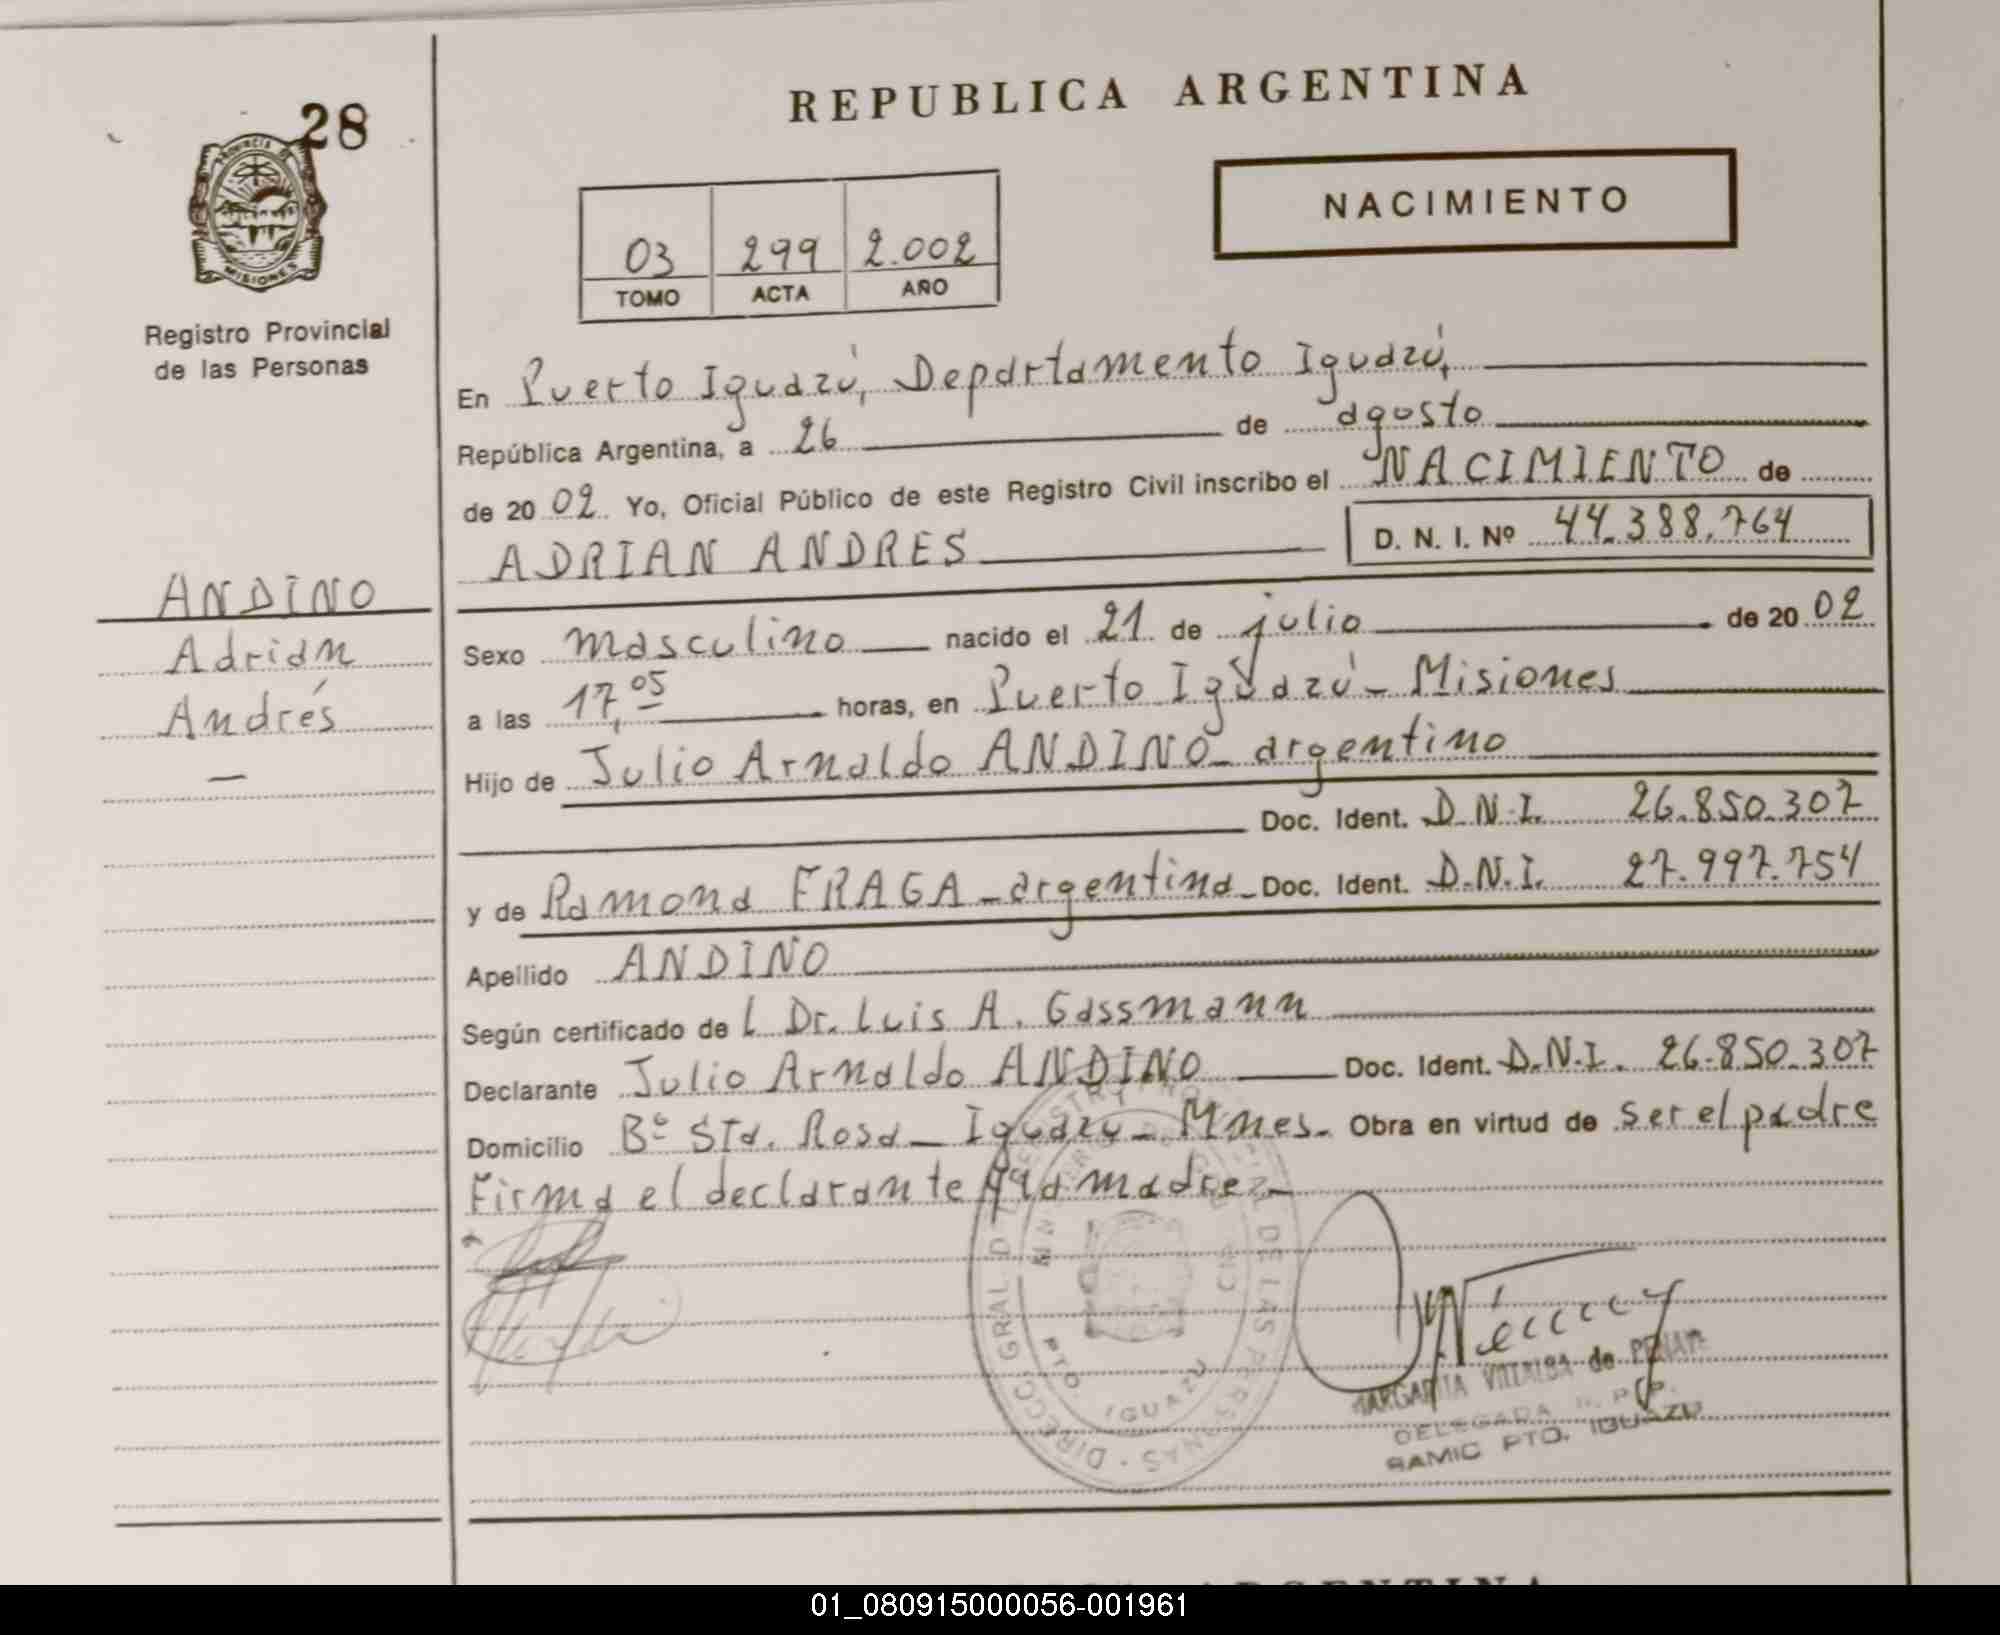 28
PROVINCIA DE
MISIONES
Registro Provincial
de las Personas
REPUBLICA ARGENTINA
NACIMIENTO
03 299 2.002
TOMO ACTA AÑO
En Puerto Iguazú, Departamento Iguazú,
República Argentina, a 26 de agosto
de 2002 Yo, Oficial Público de este Registro Civil inscribo el NACIMIENTO de
ADRIAN ANDRES D. N. I. Nº 44.388.764
ANDINO
Adrian
Andrés
—
Sexo masculino nacido el 21 de julio de 2002
a las 17,05 horas, en Puerto Iguazú - Misiones
Hijo de Julio Arnaldo ANDINO - argentino
Doc. Ident. D.N.I. 26.850.307
y de Ramona FRAGA - argentina - Doc. Ident. D.N.I. 27.997.754
Apellido ANDINO
Según certificado del Dr. Luis A. Gassmann
Declarante Julio Arnaldo ANDINO Doc. Ident. D.N.I. 26.850.307
Domicilio Bº Sta. Rosa - Iguazú - Mnes. Obra en virtud de ser el padre
Firma el declarante y la madre.-
DIRECC. GRAL. DE LAS PERSONAS
PTO. IGUAZU
MARGARITA VILLALBA de
DELEGADA R. P. P.
SAMIC PTO. IGUAZU
ARGENTINA
01_080915000056-001961